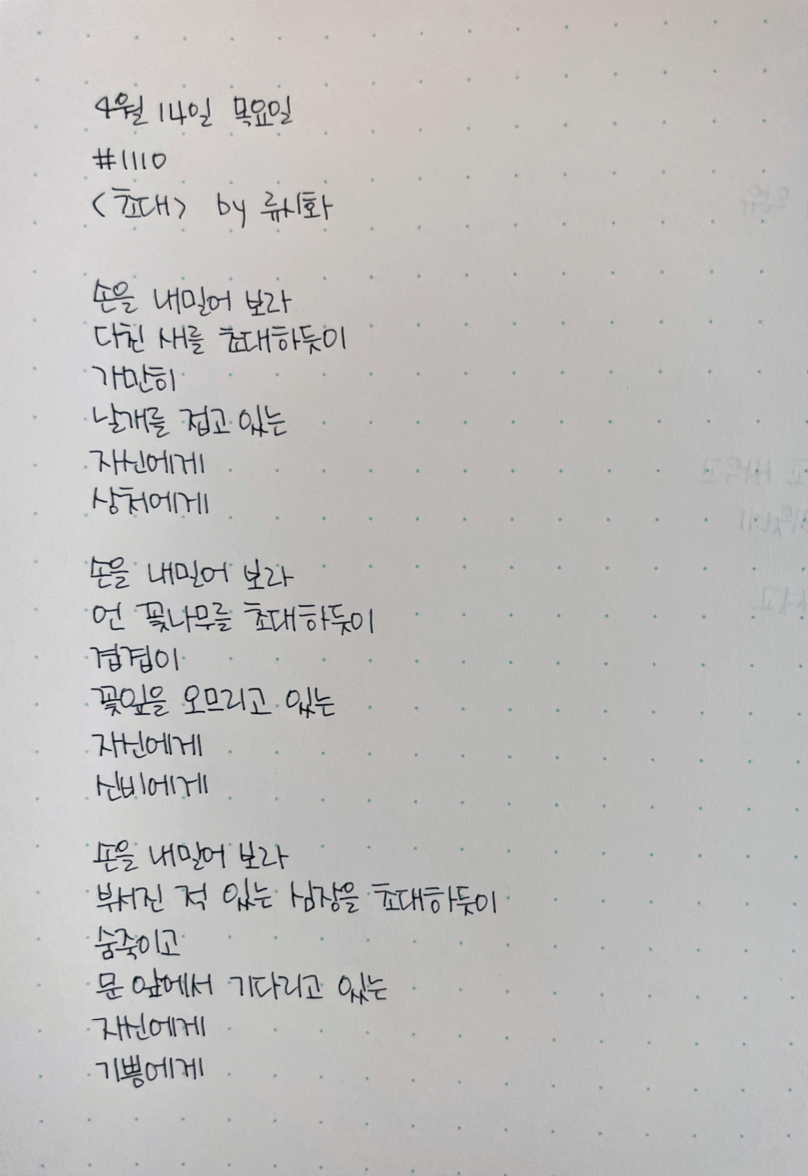 4월 14일 목요일
#1110
<초대> by 류시화
손을 내밀어 보라
다친 새를 초대하듯이
가만히
날개를 접고 있는
자신에게
상처에게
손을 내밀어 보라
언 꽃나무를 초대하듯이
겹겹이
꽃잎을 오므리고 있는
자신에게
신비에게
손을 내밀어 보라
부서진 적 있는 심장을 초대하듯이
숨죽이고
문 앞에서 기다리고 있는
자신에게
기쁨에게